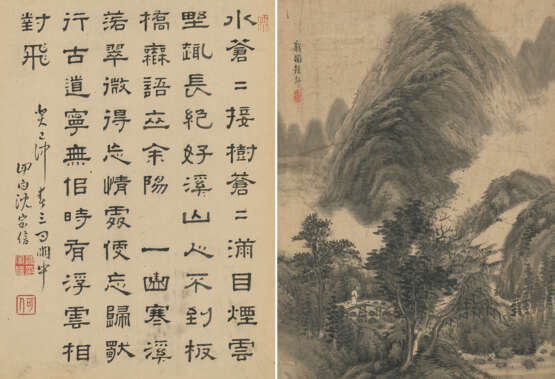 水蒼二接樹蒼二滿目煙雲
野趣長絕好溪山人不到板
橋無語立余陽 一幽寒溪
落翠微得忘情處便忘歸歇
行古道寧無侶時有浮雲相
對飛
癸巳仲春三日